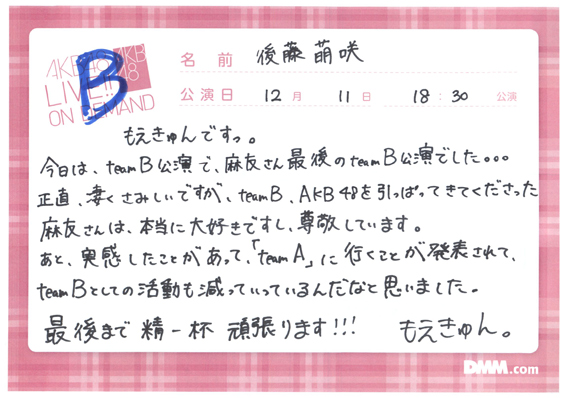 AKB48 LIVE!! ON DEMAND
AKB48
B
名前 後藤萌咲
公演日 12月 11日 18:30 公演
もえきゅんですっ。
今日は、teamB公演で、麻友さん最後のteamB公演でした。。。
正直、凄くさみしいですが、teamB、AKB48を引っぱってきてくださった
麻友さんは、本当に大好きですし、尊敬しています。
あと、実感したことがあって、「teamA」に行くことが発表されて、
teamBとしての活動も減っていっているんだなと思いました。
最後まで精一杯頑張ります!!! もえきゅん。
DMM.com